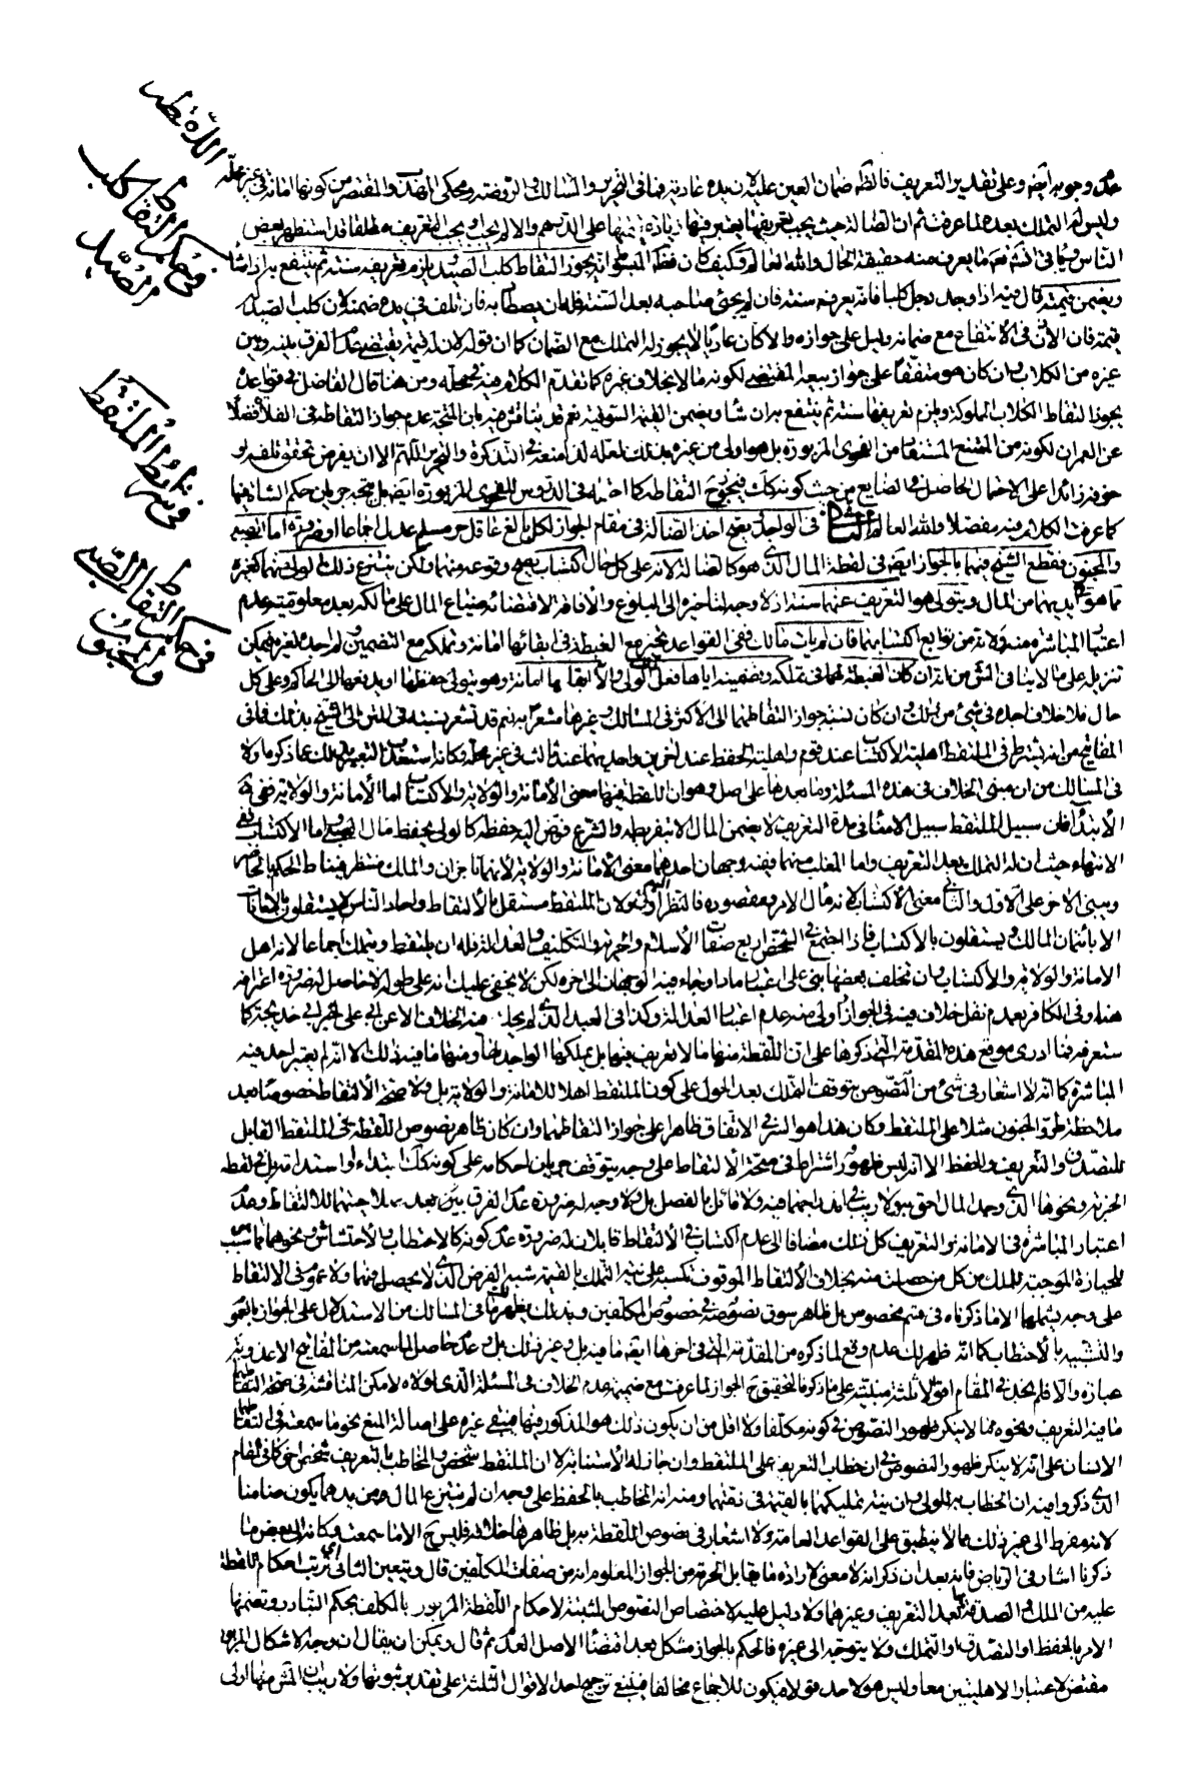 اللقطة
في حكم التقاط كلب الصيد
في شروط الملتقط
في حكم التقاط الصبي والمجنون
وجوبه أيضا وعلى تقدير التعريف فالظاهر ضمان العين عليه لأن يده عادية فما في التحرير والمسالك والروضة ومحكي من كونها أمانة في غير محله
وليس له التملك بعده لما عرفت ثم ان الضالة حيث يجب تعريفها يعتبر فيها زيادة قيمتها على الدرهم والا لم يجب ويجب التعريف مطلقا قد استظهر بعض
الناس نعم ما يعرف منه حقيقة الحال والله العالم وكيف كان يجوز التقاط كلب الصيد ويلزم تعريفه سنة ثم ينتفع به إن شاء
ويضمن قيمته قال فيه إذا وجد رجل كلبا فإنه يعرفه سنة فان لم يجئ صاحبه بعد السنة فله ان يصطاد به فان تلف في يده ضمنه لان كلب الصيد له
قيمة فان الاذن في الانتفاع مع ضمانه دليل على جوازه والا كان عاديا لا يجوز له التملك مع الضمان كما ان قوله لان له قيمة يقتضي عدم الفرق بينه وبين
غيره من الكلاب وان كان هو متفقا على جواز بيعه المقتضي لكونه مالا بخلاف غيره كما تقدم الكلام فيه في محله ومن هنا قال الفاضل في قواعده
يجوز التقاط الكلاب المملوكة ويلزم تعريفها سنة ثم ينتفع به ان شاء ويضمن القيمة السوقية نعم قد يناقش فيه بأن المتجه عدم جواز التقاطه في الفلاة فضلا
عن العمران لكونه من الممتنع المستفاد من الفحوى المزبورة بل هو أولى من غيره بذلك لعله لذا منعه في التذكرة والتحرير اللهم الا ان يفرض تحقق تلفه
كما عرفت الكلام فيه مفصلا والله العالم الثاني في الواجد يصح أخذ الضالة في مقام الجواز لكل بالغ عاقل حر مسلم عدل إجماعا أو ضرورة اما الصبي
والمجنون فقطع الشيخ فيهما بالجواز أيضا في لقطة المال الذي هو كالضالة لأنه على كل حال اكتساب يصح وقوعه منهما ولكن ينتزع ذلك الولي منهما كغيره
مما هو في يديهما من المال ويتولى هو التعريف عنهما سنة إذ لا وجه لتأخيره إلى البلوغ والإفاقة لاقتضائه ضياع المال على مالكه بعد معلومية عدم
اعتبار المباشرة منه ولأنه من توابع اكتسابهما فان لم يأت مالك ففي القواعد تخير مع الغبطة في ابقائها أمانة وتملكه مع التضمين
تنزيله على ما لا ينافي المتن من انه ان كان الغبطة لهما في تملكه وتضمينه إياها فعل الولي والا ابقاها أمانة وهو يتولى حفظها أو يدفعها إلى الحاكم وعلى كل
حال فلا خلاف أجده في شيء من ذلك وان كان نسبة جواز التقاطهما إلى الأكثر في المسالك وغيرها مشعرا به نعم قد تشعر نسبته في المتن إلى الشيخ بذلك فما في
المفاتيح من انه يشترط في الملتقط أهلية الاكتساب عند قوم وأهلية الحفظ عند آخرين واحديهما عند ثالث في غير محله
في المسالك من ان مبنى الخلاف في هذه المسألة وما بعدها على أصل وهو ان اللقطة فيها معنى الأمانة والولاية والاكتساب اما الأمانة والولاية ففي
الابتداء فان سبيل الملتقط سبيل الأمناء في مدة التعريف لا يضمن المال الا بتفريطه والشرع فوض إليه حفظه كالولي يحفظ مال الصبي واما الاكتساب ففي
الانتهاء حيث ان له التملك بعد التعريف واما المغلب منهما ففيه وجهان أحدهما معنى الأمانة والولاية لأنهما ناجزان والملك منتظر فيناط الحكم بالحاضر
ويبنى الآخر على الأول والثاني معنى الاكتساب لأنه مآل الأمر ومقصوده فالنظر إليه أولى ولان الملتقط مستقل بالالتقاط وآحاد الناس لا يستقلون بالأمانات
الا بائتمان المالك ويستقلون بالاكتساب فإذا اجتمع في الشخص أربع صفات الاسلام والحرية والتكليف والعدالة فله ان يلتقط ويتملك إجماعا لأنه أهل
الأمانة والولاية والاكتساب وان تخلف بعضها بنى على اعتبار ماذا وجاء فيه الوجهان إلى آخره لكن لا يخفى عليك انه على طوله لا حاصل له ضرورة اعترافه
هنا وفي الكافر بعدم نقل خلاف فيه في الجواز أولى منه عدم اعتبار العدالة وكذا في العبد الذي لم يجد منه الخلاف
ستعرفه فما أدري موقع هذه المقدمة التي ذكرها على ان اللقطة منها ما لا تعريف فيها بل يملكها الواجد لها ومنها ما فيه ذلك الا انه لم يعتبر أحد فيه
المباشرة كما انه لا اشعار في شيء من النصوص بتوقف التملك بعد الحول على كون الملتقط أهلا للأمانة والولاية بل ولا صحة الالتقاط خصوصا بعد
ملاحظة طرو الجنون مثلا على الملتقط وكان هذا هو السر في الاتفاق ظاهرا على جواز التقاطهما وان كان ظاهر نصوص اللقطة في الملتقط القابل
للتصدق والتعريف والحفظ الا انه ليس ظهور اشتراط في صحة الالتقاط على وجه يتوقف جريان أحكامه على كونه كذلك ابتداء واستدامة بل لقطة
الخربة ونحوها الذي وجد المال أحق به ولا ريب في اندراجهما فيه ولا قائل بالفصل بل ولا وجه له ضرورة عدم الفرق بين بعد صلاحيتهما للالتقاط وعدم
اعتبار المباشرة في الأمانة والتعريف كل ذلك مضافا إلى عدم اكتساب في الالتقاط قابلا له ضرورة عدم كونه كالاحتطاب والاحتشاش ونحوهما مما هي سبب
للحيازة الموجبة للملك من كل من حصلت منه بخلاف الالتقاط الموقوف تكسبه على نية التملك بالقيمة شبه القرض الذي لا يحصل منهما ولا عموم في الالتقاط
على وجه يشملهما الا ما ذكرناه في قسم مخصوص بل ظاهر سوق نصوصه في خصوص المكلفين وبذلك يظهر لك ما في المسالك من الاستدلال على الجواز بالعموم
والتشبيه بالاحتطاب كما انه ظهر لك عدم وقع لما ذكره من المقدمة التي في آخرها أيضا ما فيه بل وغير ذلك بل وعدم حاصل لما سمعته من المفاتيح
عبارة والا فلم نجد في المقام أقوالا ثلاثة مبنية على ما ذكره فالتحقيق ح الجواز لما عرفت مع ضميمة عدم الخلاف في المسألة الذي لولاه لامكن المناقشة في صحة التقاطهما
ما فيه التعريف ونحوه مما لا ينكر ظهور النصوص في كونه مكلفا ولا أقل من ان يكون ذلك هو المذكور فيها فيبقى غيره على أصالة المنع نحو ما سمعته في التقاطهما
الانسان على انه لا ينكر ظهور النصوص في ان خطاب التعريف على الملتقط وان جاز له الاستنابة لا ان الملتقط شخص والمخاطب بالتعريف شخص آخر كما في المقام
الذي ذكروا فيه ان الخطاب به للولي وان نية تمليكهما بالقيمة في ذمتهما ومنه انه المخاطب بالحفظ على وجه ان لم ينتزع المال من يدهما يكون ضامنا
لأنه مفرط إلى غير ذلك مما لا ينطبق على القواعد العامة ولا اشعار في نصوص اللقطة به بل ظاهرها خلافه فليس ح الا ما سمعته وكأنه إلى بعض ما
ذكرنا أشار في الرياض فإنه بعد ان ذكر انه لا معنى لإرادة ما يقابل الحرمة من الجواز المعلوم انه من صفات المكلفين قال ويتعين الثاني أي ترتب أحكام اللقطة
عليه من الملك والصدقة بعد التعريف وغيرهما ولا دليل عليه لاختصاص النصوص المثبتة لأحكام اللقطة المزبور بالمكلف بحكم التبادر وتضمنها
الأمر بالحفظ أو التصدق أو التملك ولا يتوجه إلى غيره فالحكم بالجواز مشكل بعد اقتضاء الأصل العدم ثم قال ويمكن ان يقال ان وجه الاشكال المزبور
مقتض لاعتبار الأهليتين معا وليس هو لأحد قولا فيكون للإجماع مخالفا فينبغي ترجيح أحد الأقوال الثلاثة على تقدير ثبوتها ولا ريب ان المتن منها أولى